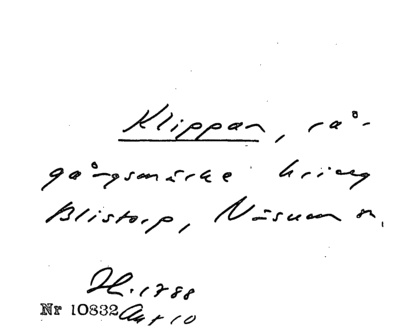 Klippan, rå-
gångsmärke kring
Blistorp, Näsum sn.
H. 1788
Nr 10832 Akt 10